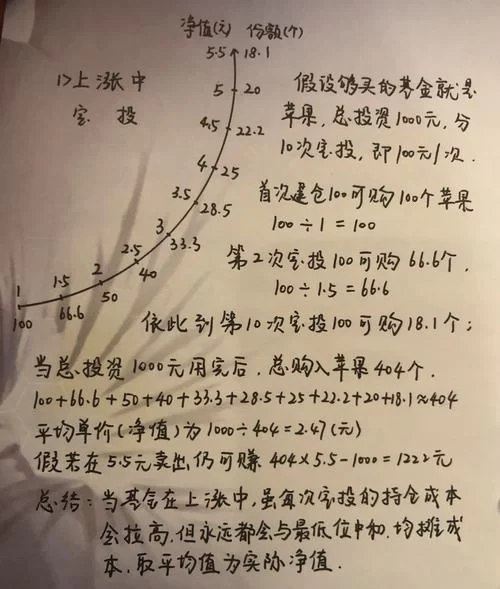 净值(元) 份额(个)
5.5 18.1
1>上涨中
定投
5 20
4.5 22.2
4 25
3.5 28.5
3 33.3
2.5 40
2 50
1.5 66.6
1 100
假设够买的基金就是
苹果,总投资1000元,分
10次定投,即100元/次.
首次建仓100可购100个苹果
100÷1=100
第2次定投100可购66.6个,
100÷1.5=66.6
依此到第10次定投100可购18.1个;
当总投资1000元用完后,总购入苹果404个.
100+66.6+50+40+33.3+28.5+25+22.2+20+18.1≈404
平均单价(净值)为1000÷404=2.47(元)
假若在5.5元卖出,仍可赚404×5.5-1000=1222元
总结:当基金在上涨中,虽每次定投的持仓成本
会拉高,但永远都会与最低位中和,均摊成
本,取平均值为实际净值.